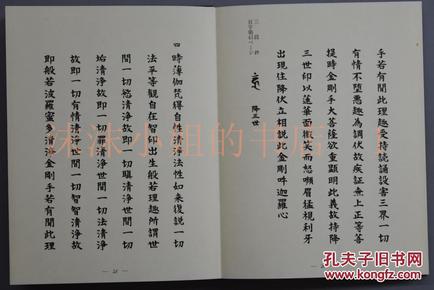 手若有聞此理趣受持讀誦設害三界一切
有情不墮惡趣為調伏故疾証無上正等菩
提時金剛手大菩薩欲重顯明此義故持降
三世印以蓮華面微笑而怒顰眉猛視利牙
出現住降伏立相說此金剛吽迦羅心
降三世
四 時薄伽梵得自性清淨法性如來復說一切
法平等觀自在智印出生般若理趣所謂世
間一切慾清淨故即一切瞋清淨世間一切
垢清淨故即一切罪清淨世間一切法清淨
故即一切有情清淨世間一切智智清淨故
即般若波羅蜜多清淨金剛手若有聞此理
孔夫子旧书网